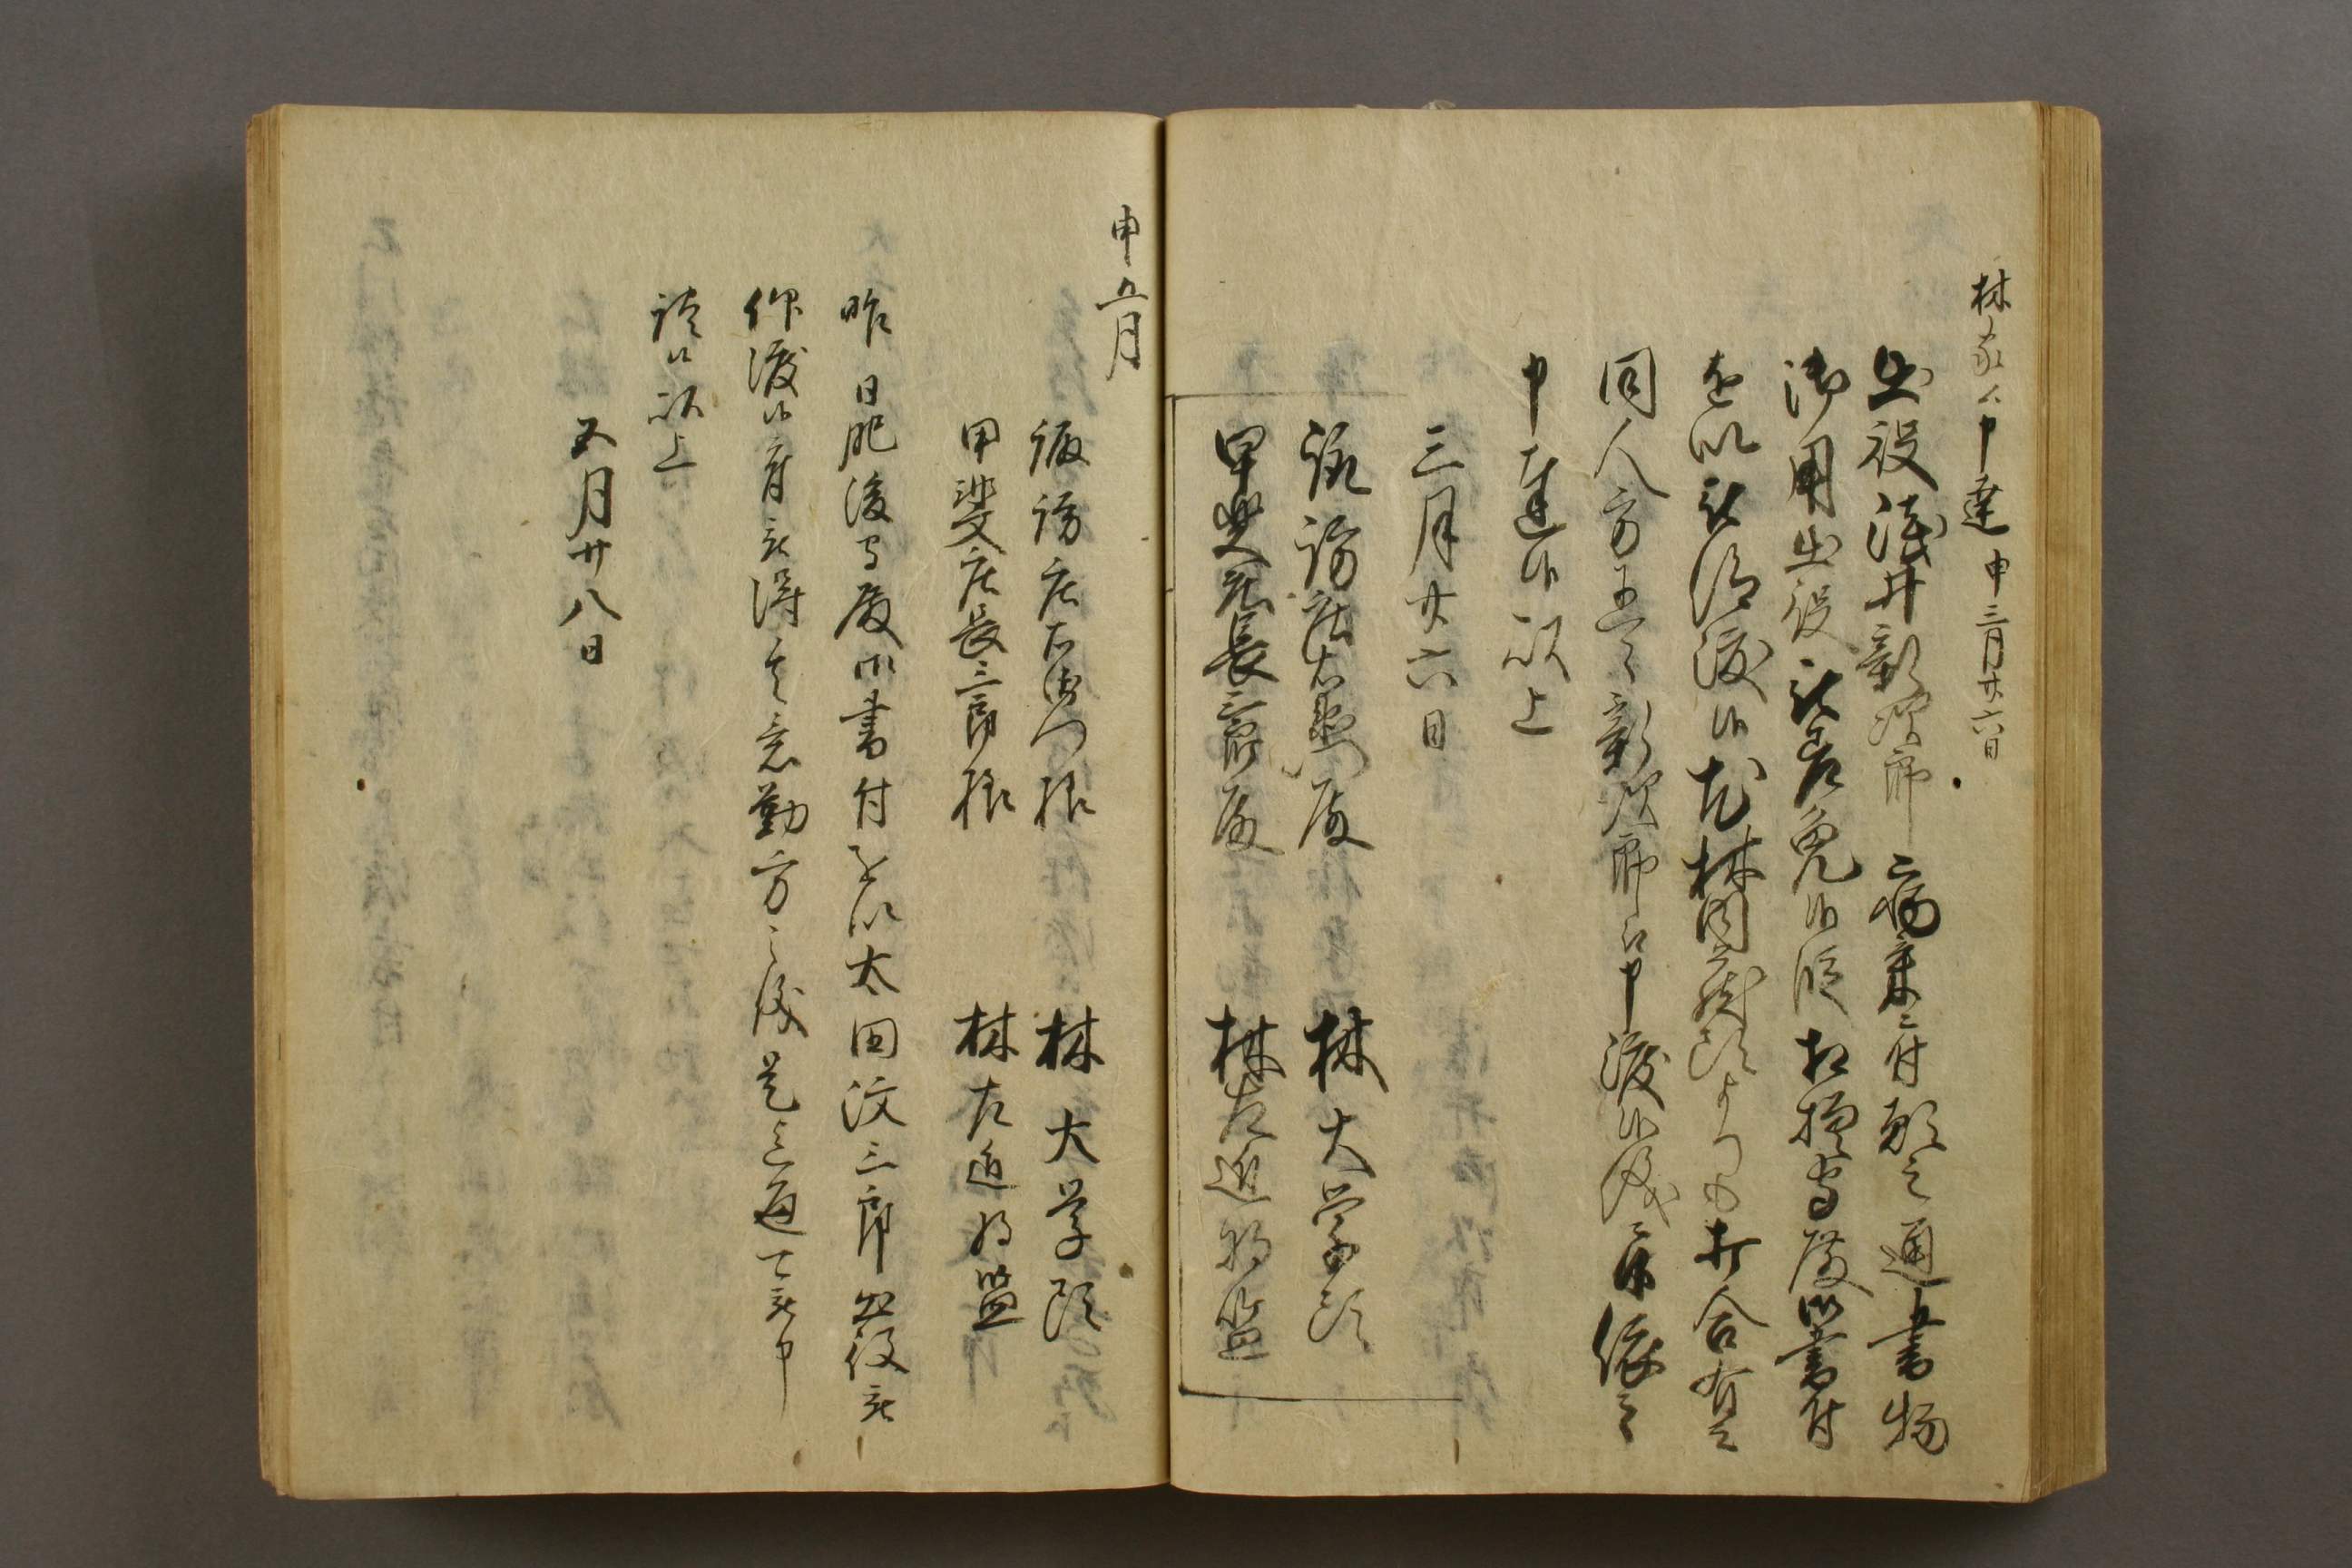 林家より申達 申三月廿六日
出役浅井新次郎病気ニ付願之通書物
御用出役被差免候段摂津守殿御書付
を以被仰渡候尤林図書頭よりも打合有之
同人方ニ而新次郎江申渡候段依之
申達候以上
三月廿六日
諏訪庄右衛門殿 林大学頭
甲斐庄長三郎殿 林左近将監
申五月
諏訪庄右衛門様 林大学頭
甲斐庄長三郎様 林左近将監
昨日肥後守殿御書付を以太田汶三郎出役被
仰渡候旨被得其意勤方之儀是迄之通可被申
談候以上
五月廿八日